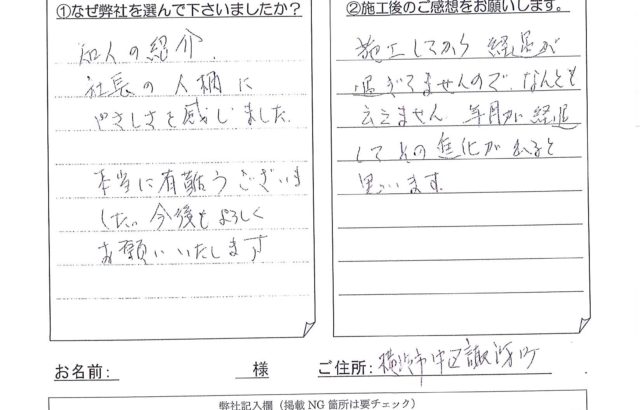 ①なぜ弊社を選んで下さいましたか？
知人の紹介.
社長の人柄に
やさしさを感じました.
本当に有難うございま
した。今後もよろしく
お願いいたします
②施工後のご感想をお願いします。
施工してから 経過が
過ぎてませんので、なんとも
云えません 年月が経過
してその進化が出ると
思います.
お名前:　　　　　様
ご住所: 横浜市中区諏訪町
弊社記入欄（掲載 NG 箇所は要チェック）